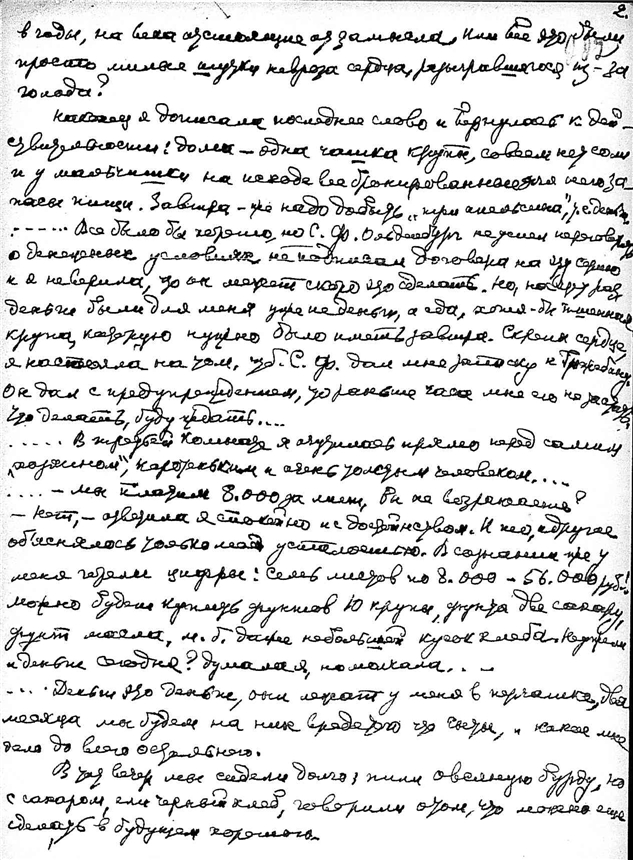 2.
в годы, на века отстоящие от замысла. Или все это были
просто милые шутки невроза сердца, разыгравшегося из-за
голода?
Наконец я дописала последнее слово и вернулась к дей-
ствительности: дома – одна чашка крупы, совсем нет соли
и у мальчишки на исходе все бронированные для него за
пасы пищи. Завтра-же надо добыть „три апельсина", т.е. деньги.
...... Все было бы хорошо, но С. Ф. Ольденбург не успел переговорить
о денежных условиях, не подписал договора на эту серию
и я не верила, что он может скоро это сделать. Но, на этот раз
деньги были для меня уже не деньги, а еда, хотя-бы пшенная
крупа, которую нужно было иметь завтра. Скрепя сердце,
я настояла на том, чтоб С. Ф. дал мне записку к Гржебину.
Он дал с предупреждением, что раньше часа мне его не застать.
Что делать, буду ждать....
..... В третьей комнате я очутилась прямо перед самим
"хозяином", коротеньким и очень толстым человеком....
.... – Мы платим 8.000 за лист, Вы не возражаете?
– Нет, – ответила я спокойно и с достоинством. И то, и другое
объяснялось только моей усталостью. В сознании же у
меня горели цифры: семь листов по 8.000 – 56.000 руб.!
можно будет купить фунтов 10 крупы, фунта два сахару,
фунт масла, м. б. даже небольшой кусок хлеба. Неужели
и деньги сегодня? Думала я, но молчала. . . .
.... Деньги это деньги, они лежат у меня в кармашке, два
месяца мы будем на них вроде того что сыты, и какое мне
дело до всего остального.
В тот вечер мы сидели долго; пили овсяную бурду, но
с сахаром, ели черный хлеб, говорили о том, что можно еще
сделать в будущем хорошего.